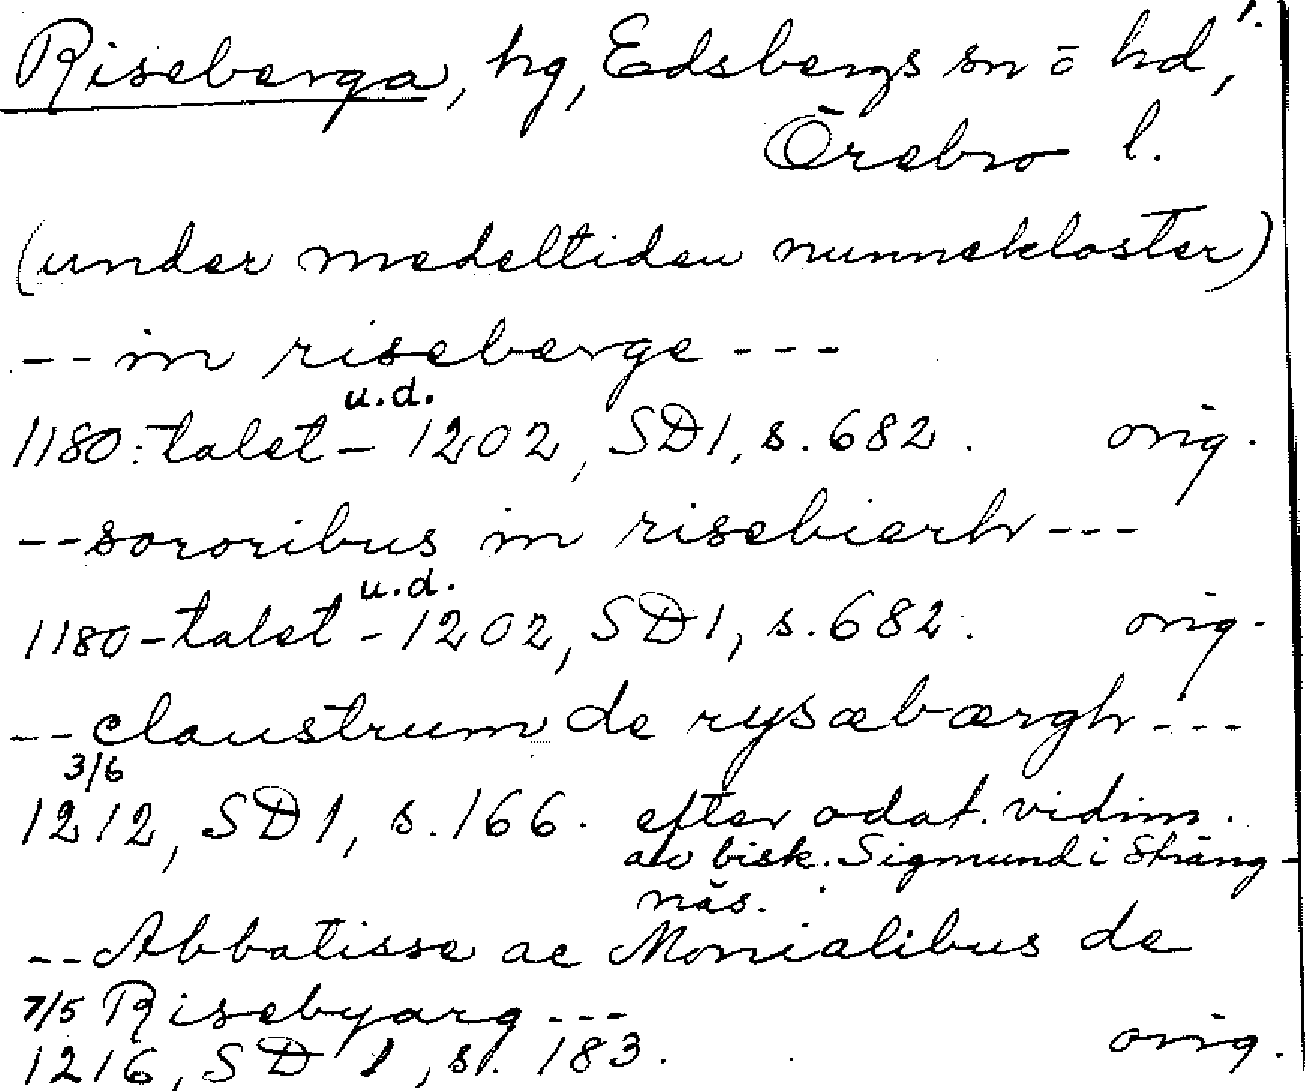 Riseberga, hg, Edsbergs sn o hd, 1.
Örebro l.
(under medeltiden nunnekloster)
-- in riseberge ---
u.d.
1180-talet - 1202, SD 1, s. 682. orig.
-- sororibus in risebierh ---
u.d.
1180-talet - 1202, SD 1, s. 682. orig.
-- claustrum de rysæbærgh ---
3/6
1212, SD 1, s. 166. efter odat. vidim.
av bisk. Sigmund i Sträng-
näs.
-- Abbatisse ac Monialibus de
7/5 Risebyarg ---
1216, SD 1, s. 183. orig.